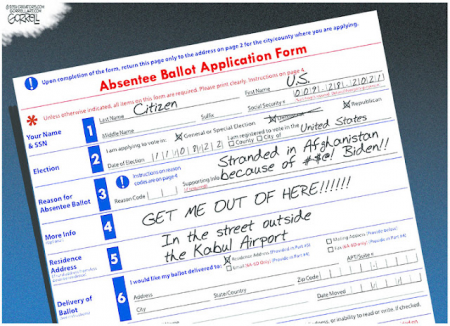 ©2021 CREATORS.COM
GORRELLART.COM
GORRELL
Upon completion of the form, return this page only to the address on page 2 for the city/county where you are applying.
Absentee Ballot Application Form
* Unless otherwise indicated, all items on this form are required. Please print clearly. Instructions on page 4.
Your Name & SSN
1
Last Name Citizen
First Name U.S.
Middle Name
Suffix
Social Security #
Election
2
I am applying to vote in: X General or Special Election
X Republican
Date of Election
I am registered to vote in the United States
County City of:
Reason for Absentee Ballot
3
Instructions on reason codes are on page 4
Reason Code
Supporting Info
Stranded in Afghanistan
because of #$@! Biden!!
More Info
4
GET ME OUT OF HERE!!!!!!
Residence Address
5
In the street outside
the Kabul Airport
Delivery of Ballot
6
I would like my ballot delivered to:
X Residence Address
Mailing Address
Address
Apt/Suite
City
State/Country
Zip Code
Date Moved